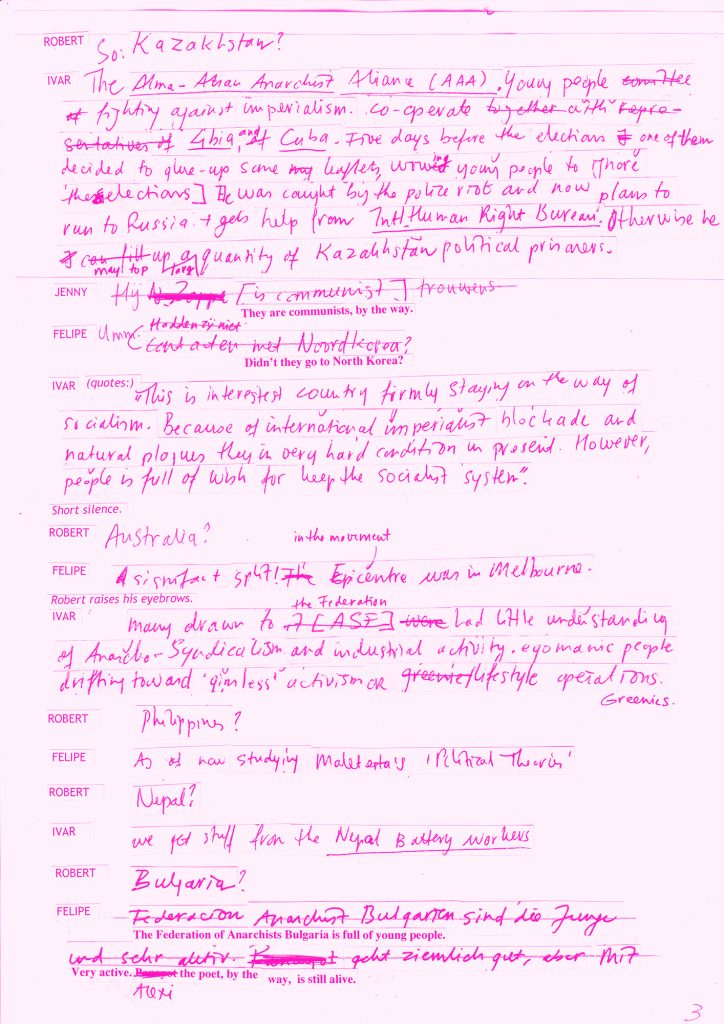 ROBERT So: Kazakhstan?
IVAR The Alma-Atian Anarchist Aliance (AAA). Young people committee
of fighting against imperialism. co-operate together with repre-
sentatives of Lybia, and of Cuba. Five days before the elections one of them
decided to glue-up some leaflets, young people to ignore
the elections] He was caught by the police riot and now plans to
run to Russia. + gets help from Intl Human Right Bureau. Otherwise he
can fill up quantity of Kazakhstan political prisoners.
may top large
JENNY Hij [is communist] trouwens
They are communists, by the way.
FELIPE Umm. Hadden zij niet
Contacten met Noordkorea?
Didn't they go to North Korea?
IVAR (quotes:) "This is interestest country firmly staying on the way of
socialism. Because of international imperialist blockade and
natural plagues they in very hard condition in present. However,
people is full of wish for keep the socialist system".
Short silence.
ROBERT Australia?
in the movement
FELIPE A signifact split! The Epicentre was in Melbourne.
Robert raises his eyebrows.
the Federation
IVAR many drawn to [ASF] were had little understanding
of Anarcho-Syndicalism and industrial activity. egomanic people
drifting toward 'aimless' activism or greenie/lifestyle operations.
Greenies.
ROBERT Philippines?
FELIPE As of now studying Malatesta's 'Political Theories'
ROBERT Nepal?
IVAR we get stuff from the Nepal Battery Workers
ROBERT Bulgaria?
FELIPE Federacion Anarchist Bulgarien sind die Junge
The Federation of Anarchists Bulgaria is full of young people.
und sehr aktiv. geht ziemlich gut, aber mit
Very active. the poet, by the way, is still alive.
Alexi
3